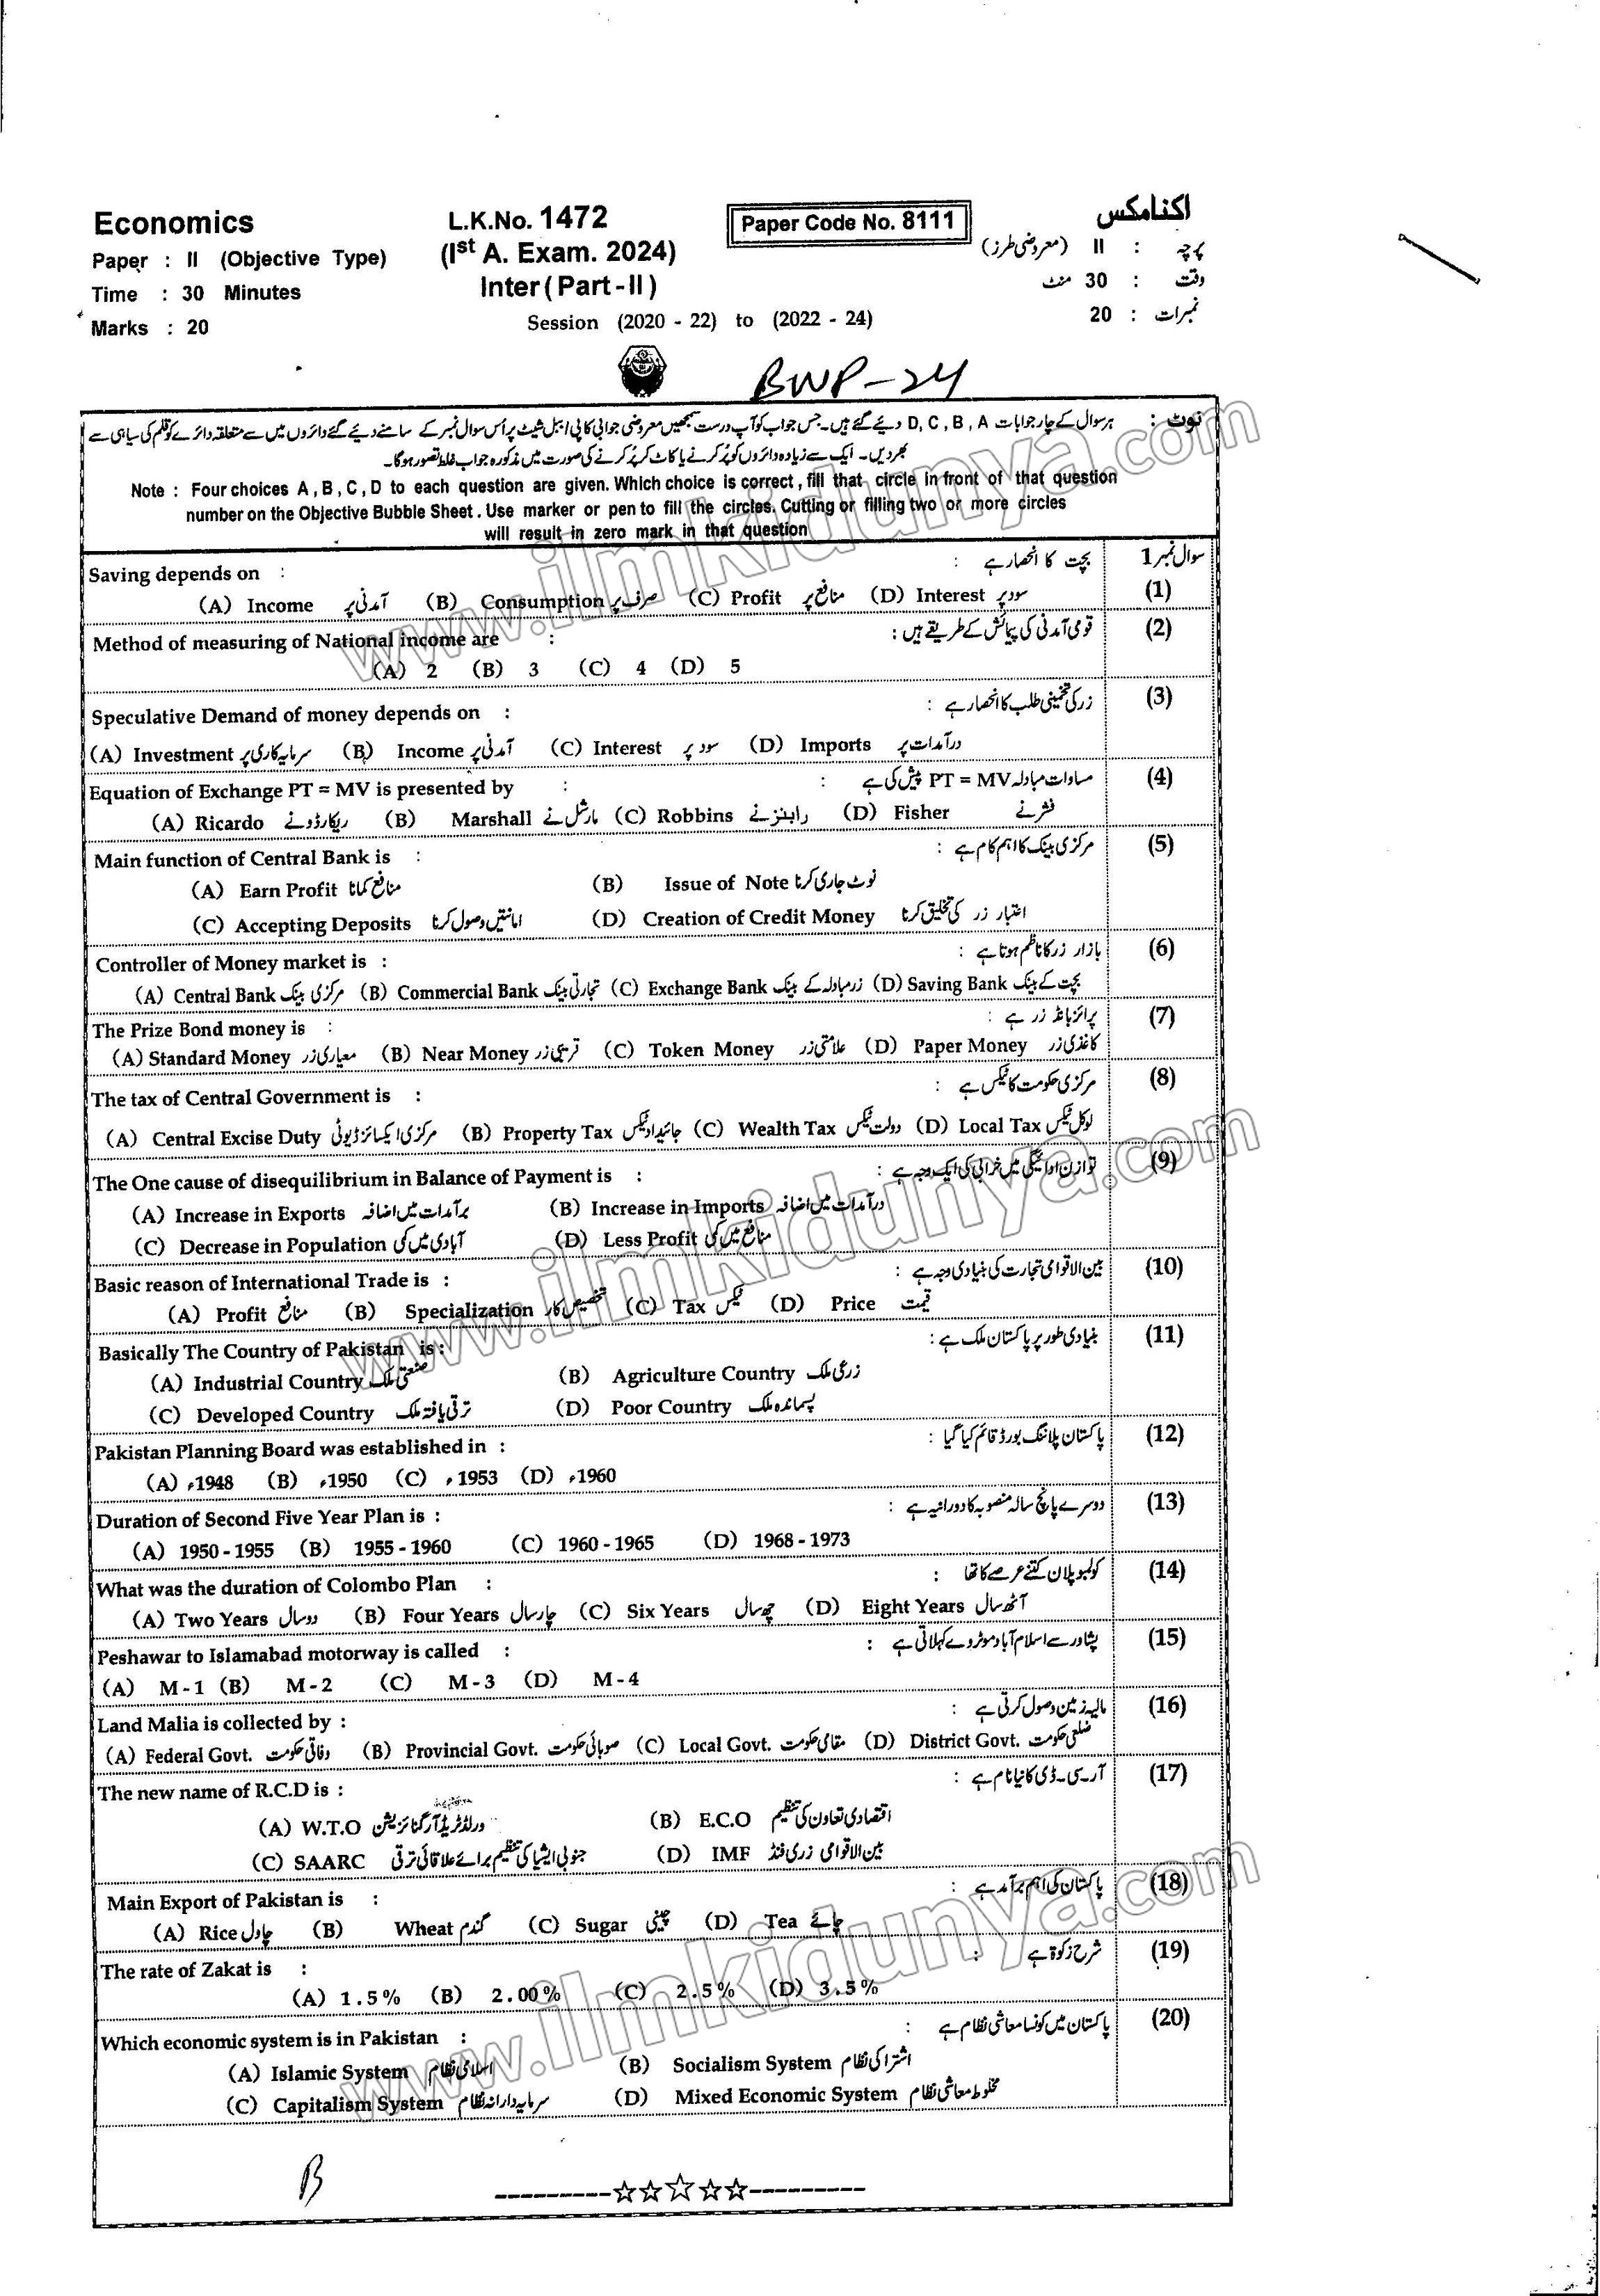 Economics
L.K.No. 1472
Paper Code No. 8111
اکنامکس
Paper : II (Objective Type)
(Iˢᵗ A. Exam. 2024)
پرچہ : II (معروضی طرز)
Time : 30 Minutes
Inter (Part-II)
وقت : 30 منٹ
Marks : 20
Session (2020 - 22) to (2022 - 24)
نمبرات : 20
BWP-24
نوٹ : ہر سوال کے چار جوابات D, C, B, A دیئے گئے ہیں۔ جس جواب کو آپ درست سمجھیں معروضی جوابی کاپی / ببل شیٹ پر اُس سوال نمبر کے سامنے دیئے گئے دائروں میں سے متعلقہ دائرے کو قلم کی سیاہی سے
بھر دیں۔ ایک سے زیادہ دائروں کو پُر کرنے یا کاٹ کر پُر کرنے کی صورت میں مذکورہ جواب غلط تصور ہو گا۔
Note : Four choices A, B, C, D to each question are given. Which choice is correct, fill that circle in front of that question
number on the Objective Bubble Sheet. Use marker or pen to fill the circles. Cutting or filling two or more circles
will result in zero mark in that question
سوال نمبر 1
Saving depends on : بچت کا انحصار ہے :
(1)
(A) Income آمدنی پر (B) Consumption صرف پر (C) Profit منافع پر (D) Interest سود پر
Method of measuring of National income are : قومی آمدنی کی پیمائش کے طریقے ہیں : (2)
(A) 2 (B) 3 (C) 4 (D) 5
Speculative Demand of money depends on : زر کی تخمینی طلب کا انحصار ہے : (3)
(A) Investment سرمایہ کاری پر (B) Income آمدنی پر (C) Interest سود پر (D) Imports درآمدات پر
Equation of Exchange PT = MV is presented by : مساوات مبادلہ PT = MV پیش کی ہے : (4)
(A) Ricardo ریکارڈو نے (B) Marshall مارشل نے (C) Robbins رابنز نے (D) Fisher فشر نے
Main function of Central Bank is : مرکزی بینک کا اہم کام ہے : (5)
(A) Earn Profit منافع کمانا (B) Issue of Note نوٹ جاری کرنا
(C) Accepting Deposits امانتیں وصول کرنا (D) Creation of Credit Money اعتبار زر کی تخلیق کرنا
Controller of Money market is : بازار زر کا ناظم ہوتا ہے : (6)
(A) Central Bank مرکزی بینک (B) Commercial Bank تجارتی بینک (C) Exchange Bank زرمبادلہ کے بینک (D) Saving Bank بچت کے بینک
The Prize Bond money is : پرائز بانڈ زر ہے : (7)
(A) Standard Money معیاری زر (B) Near Money قریبی زر (C) Token Money علامتی زر (D) Paper Money کاغذی زر
The tax of Central Government is : مرکزی حکومت کا ٹیکس ہے : (8)
(A) Central Excise Duty مرکزی ایکسائز ڈیوٹی (B) Property Tax جائیداد ٹیکس (C) Wealth Tax دولت ٹیکس (D) Local Tax لوکل ٹیکس
The One cause of disequilibrium in Balance of Payment is : توازن ادائیگی میں خرابی کی ایک وجہ ہے : (9)
(A) Increase in Exports برآمدات میں اضافہ (B) Increase in Imports درآمدات میں اضافہ
(C) Decrease in Population آبادی میں کمی (D) Less Profit منافع میں کمی
Basic reason of International Trade is : بین الاقوامی تجارت کی بنیادی وجہ ہے : (10)
(A) Profit منافع (B) Specialization تخصیص کار (C) Tax ٹیکس (D) Price قیمت
Basically The Country of Pakistan is : بنیادی طور پر پاکستان ملک ہے : (11)
(A) Industrial Country صنعتی ملک (B) Agriculture Country زرعی ملک
(C) Developed Country ترقی یافتہ ملک (D) Poor Country پسماندہ ملک
Pakistan Planning Board was established in : پاکستان پلاننگ بورڈ قائم کیا گیا : (12)
(A) ء1948 (B) ء1950 (C) ء1953 (D) ء1960
Duration of Second Five Year Plan is : دوسرے پانچ سالہ منصوبہ کا دورانیہ ہے : (13)
(A) 1950 - 1955 (B) 1955 - 1960 (C) 1960 - 1965 (D) 1968 - 1973
What was the duration of Colombo Plan : کولمبو پلان کتنے عرصے کا تھا : (14)
(A) Two Years دو سال (B) Four Years چار سال (C) Six Years چھ سال (D) Eight Years آٹھ سال
Peshawar to Islamabad motorway is called : پشاور سے اسلام آباد موٹروے کہلاتی ہے : (15)
(A) M - 1 (B) M - 2 (C) M - 3 (D) M - 4
Land Malia is collected by : مالیہ زمین وصول کرتی ہے : (16)
(A) Federal Govt. وفاقی حکومت (B) Provincial Govt. صوبائی حکومت (C) Local Govt. مقامی حکومت (D) District Govt. ضلعی حکومت
The new name of R.C.D is : آر۔سی۔ڈی کا نیا نام ہے : (17)
(A) W.T.O ورلڈ ٹریڈ آرگنائزیشن (B) E.C.O اقتصادی تعاون کی تنظیم
(C) SAARC جنوبی ایشیا کی تنظیم برائے علاقائی ترقی (D) IMF بین الاقوامی زری فنڈ
Main Export of Pakistan is : پاکستان کی اہم برآمد ہے : (18)
(A) Rice چاول (B) Wheat گندم (C) Sugar چینی (D) Tea چائے
The rate of Zakat is : شرح زکوٰۃ ہے : (19)
(A) 1.5% (B) 2.00% (C) 2.5% (D) 3.5%
Which economic system is in Pakistan : پاکستان میں کونسا معاشی نظام ہے : (20)
(A) Islamic System اسلامی نظام (B) Socialism System اشتراکی نظام
(C) Capitalism System سرمایہ دارانہ نظام (D) Mixed Economic System مخلوط معاشی نظام
B
www.ilmkidunya.com
www.ilmkidunya.com
www.ilmkidunya.com